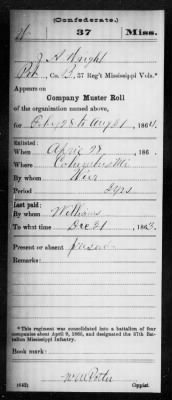 (Confederate.)
37 Miss.
J. A. Wright
Pvt, Co. B, 37 Reg't Mississippi Vols.*
Appears on
Company Muster Roll
of the organization named above,
for Feby 28 to Aug 31, 1864.
Enlisted:
When April 27, 186
Where
By whom Weir
Period 3 yrs
Last paid:
By whom Williams
To what time Dec 31, 1863.
Present or absent present
Remarks:
*This regiment was consolidated into a battalion of four
companies about April 9, 1865, and designated the 37th Bat-
talion Mississippi Infantry.
Book mark:
(642)
Copyist.